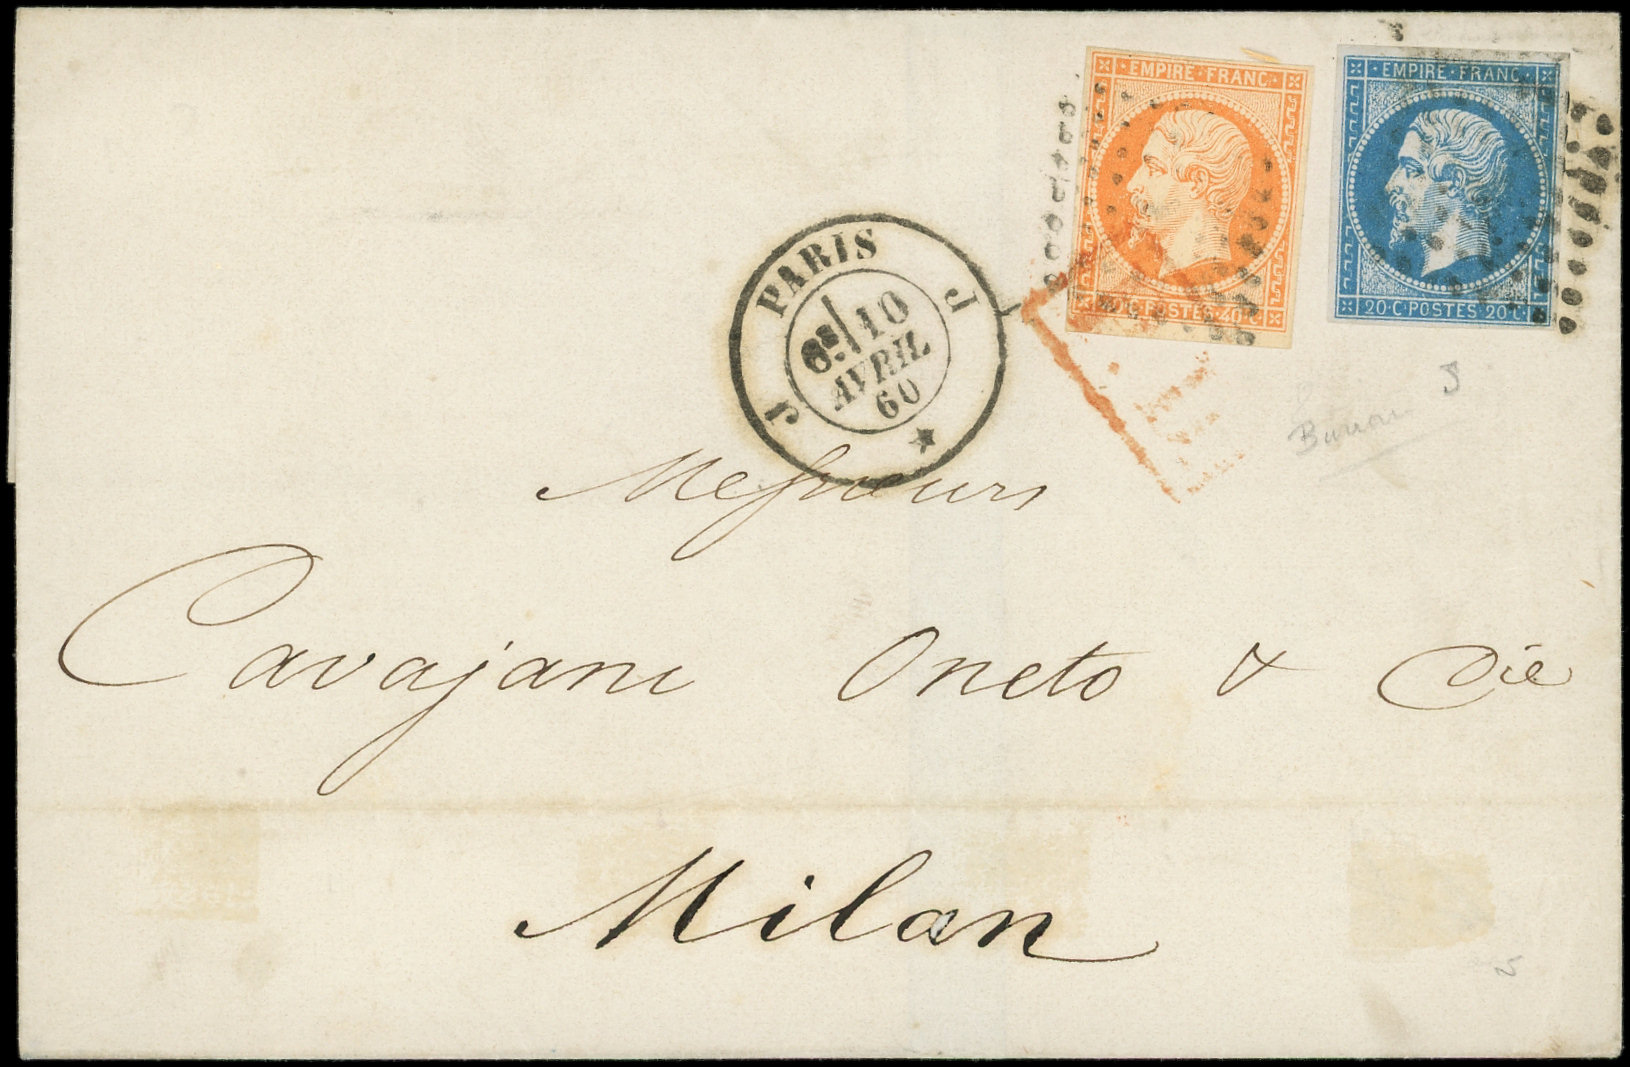 EMPIRE · FRANC ·
POSTES · 40 C ·
· EMPIRE · FRANC
20 · C · POSTES · 20 · C
PARIS
J J
6E 10
AVRIL
60
Messieurs
Cavajani Oneto & Cie
Milan